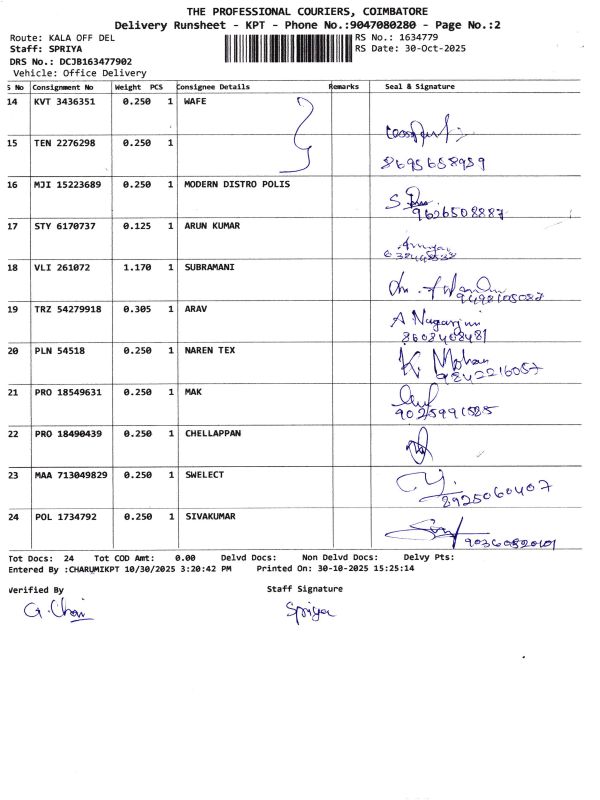 THE PROFESSIONAL COURIERS, COIMBATORE
Delivery Runsheet - KPT - Phone No.:9047080280 - Page No.:2
Route: KALA OFF DEL RS No.: 1634779
Staff: SPRIYA RS Date: 30-Oct-2025
DRS No.: DCJB163477902
Vehicle: Office Delivery
S No Consignment No Weight PCS Consignee Details Remarks Seal & Signature
14 KVT 3436351 0.250 1 WAFE
15 TEN 2276298 0.250 1
8695658959
16 MJI 15223689 0.250 1 MODERN DISTRO POLIS
9626508887
17 STY 6170737 0.125 1 ARUN KUMAR
18 VLI 261072 1.170 1 SUBRAMANI
19 TRZ 54279918 0.305 1 ARAV
A Nagarjun
8603408481
20 PLN 54518 0.250 1 NAREN TEX
K. Mohan
9842216057
21 PRO 18549631 0.250 1 MAK
9025991585
22 PRO 18490439 0.250 1 CHELLAPPAN
23 MAA 713049829 0.250 1 SWELECT
8925060407
24 POL 1734792 0.250 1 SIVAKUMAR
Tot Docs: 24 Tot COD Amt: 0.00 Delvd Docs: Non Delvd Docs: Delvy Pts:
Entered By :CHARUMIKPT 10/30/2025 3:20:42 PM Printed On: 30-10-2025 15:25:14
Verified By Staff Signature
Spriya